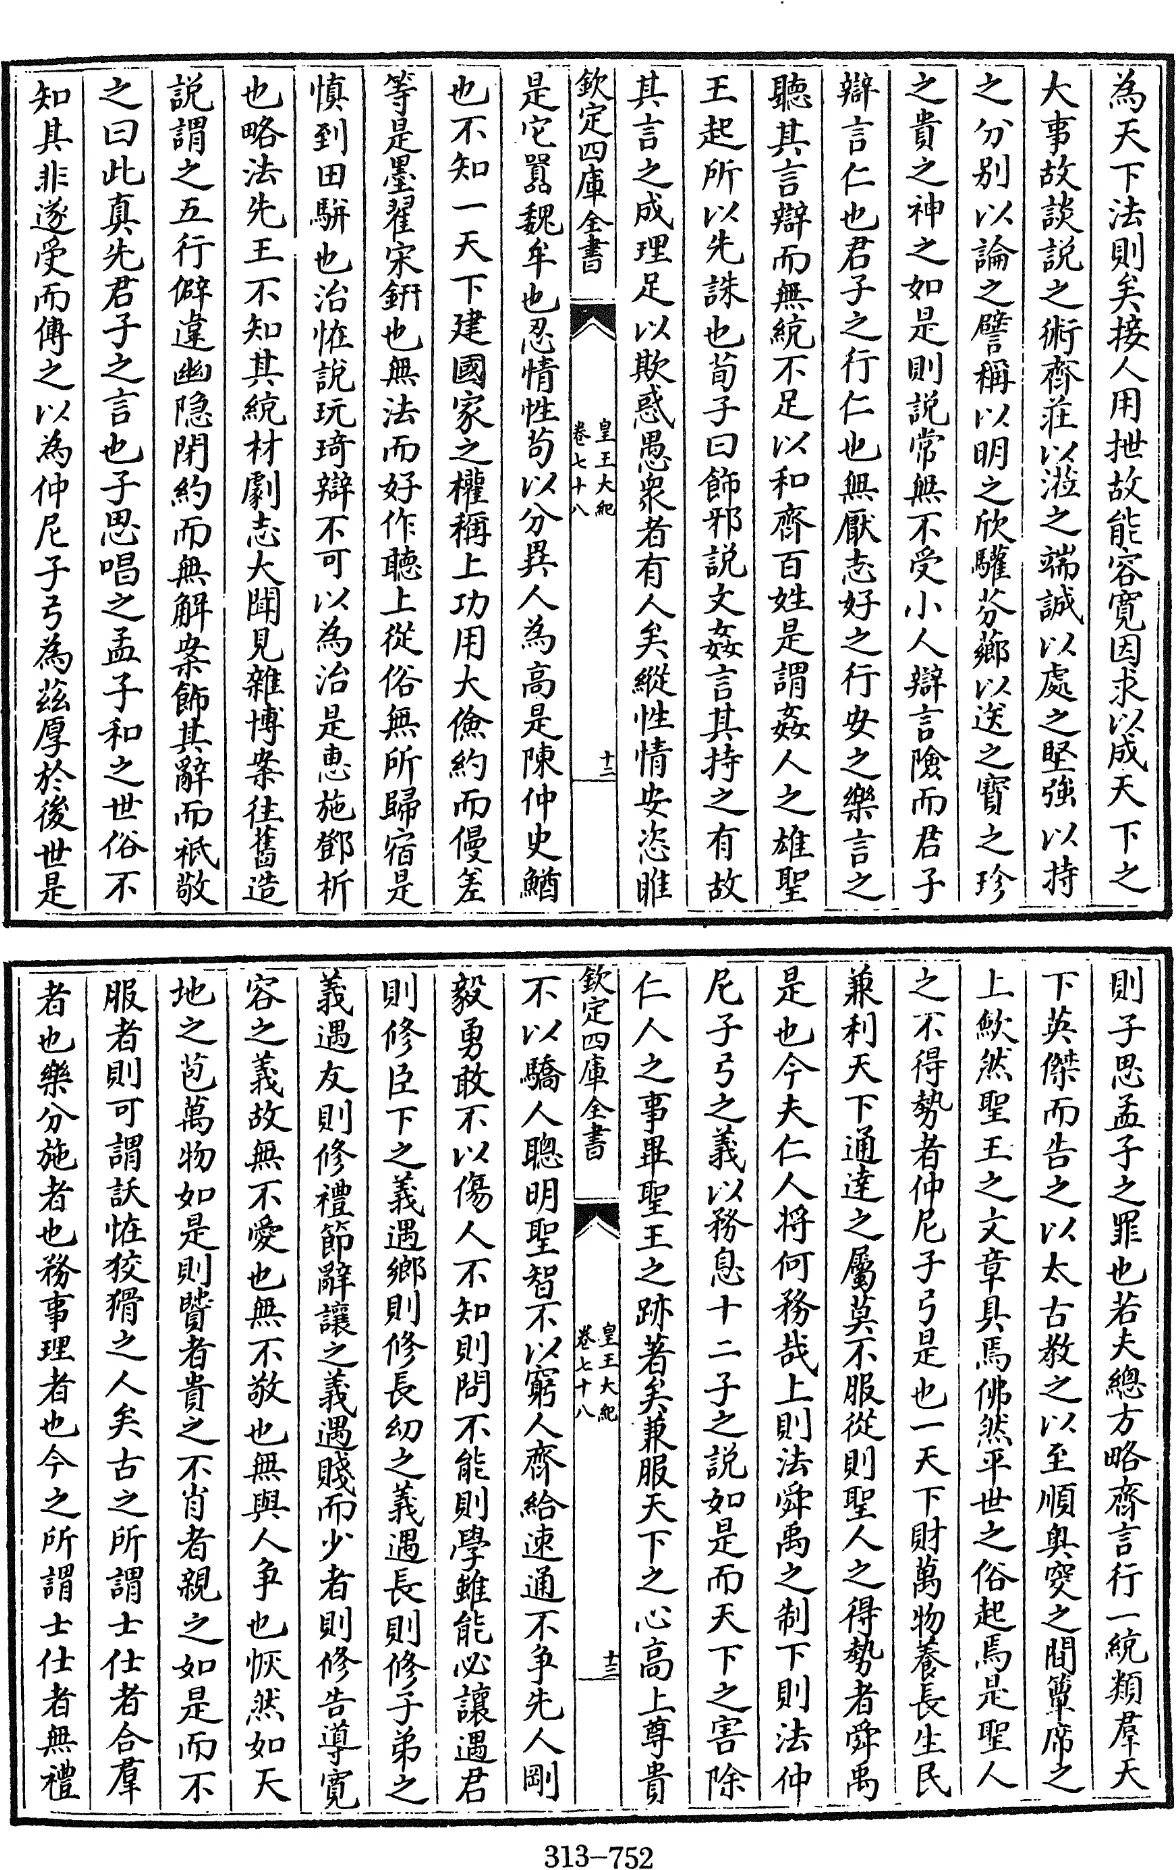 為天下法則矣接人用抴故能容寛因求以成天下之
大事故談説之術齊莊以涖之端誠以處之堅強以持
之分别以論之譬稱以明之欣驩芬薌以送之寶之珍
之貴之神之如是則説常無不受小人辯言險而君子
辯言仁也君子之行仁也無厭志好之行安之樂言之
聽其言辯而無統不足以和齊百姓是謂姦人之雄聖
王起所以先誅也荀子曰飾邪説文姦言其持之有故
其言之成理足以欺惑愚衆者有人矣縱性情安恣睢
欽定四庫全書
皇王大紀
卷七十八
十三
是它嚚魏牟也忍情性茍以分異人為高是陳仲史鰌
也不知一天下建國家之權稱上功用大儉約而僈差
等是墨翟宋鈃也無法而好作聽上從俗無所歸宿是
慎到田駢也治恠説玩琦辯不可以為治是惠施鄧析
也略法先王不知其統材劇志大聞見雜博案往舊造
説謂之五行僻違幽隐閉約而無解案飾其辭而祗敬
之曰此真先君子之言也子思唱之孟子和之世俗不
知其非遂受而傳之以為仲尼子弓為茲厚於後世是
則子思孟子之罪也若夫總方略齊言行一統類羣天
下英傑而告之以太古教之以至順奥窔之間簟席之
上歘然聖王之文章具焉佛然平世之俗起焉是聖人
之不得勢者仲尼子弓是也一天下財萬物養長生民
兼利天下通達之屬莫不服從則聖人之得勢者舜禹
是也今夫仁人将何務哉上則法舜禹之制下則法仲
尼子弓之義以務息十二子之説如是而天下之害除
仁人之事畢聖王之跡著矣兼服天下之心高上尊貴
欽定四庫全書
皇王大紀
卷七十八
十三
不以驕人聰明聖智不以窮人齊給速通不爭先人剛
毅勇敢不以傷人不知則問不能則學雖能必讓遇君
則修臣下之義遇鄉則修長幼之義遇長則修子弟之
義遇友則修禮節辭讓之義遇賤而少者則修告導寛
容之義故無不愛也無不敬也無與人爭也恢然如天
地之苞萬物如是則賢者貴之不肖者親之如是而不
服者則可謂訞恠狡猾之人矣古之所謂士仕者合羣
者也樂分施者也務事理者也今之所謂士仕者無禮
313-752